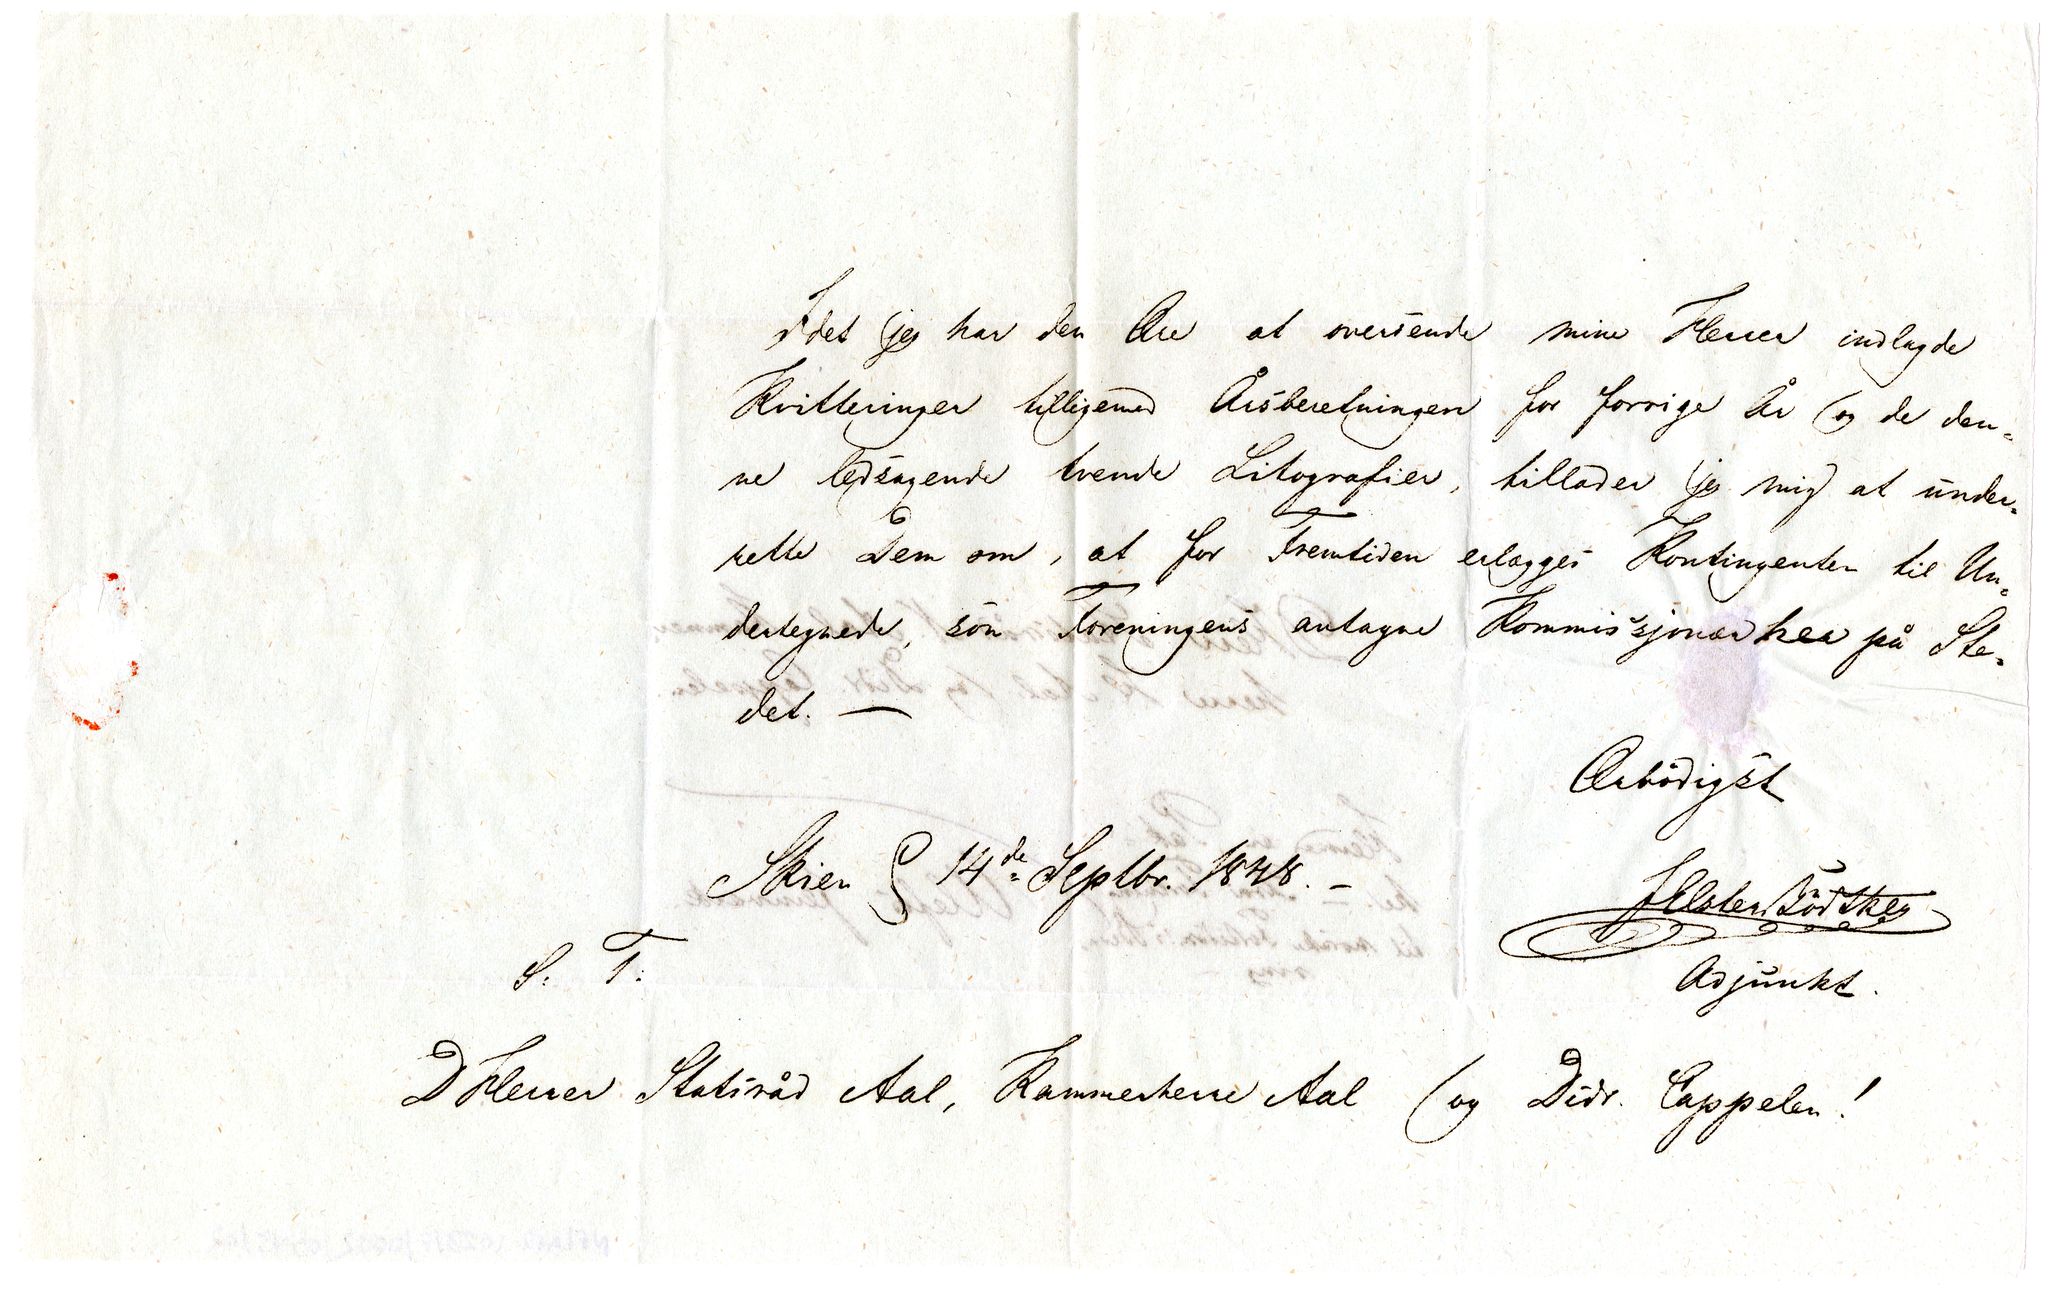 Idet jeg har den Ære at oversende mine Herrer indlagde
Kvitteringer tilligemed Årsberetningen for forrige År og de den-
ne ledsagende tvende Litografier, tillader jeg mig at under-
rette Dem om, at for Fremtiden erlægges Kontingenten til Un-
dertegnede, som Foreningens antagne Kommissjonær her på Ste-
det. —
Ærbödigst
Skien 14de Septbr. 1848. —
Bödtker
Adjunkt.
S. T.
D Herrer Statsråd Aal, Kammerherre Aal og Didr. Cappelen!